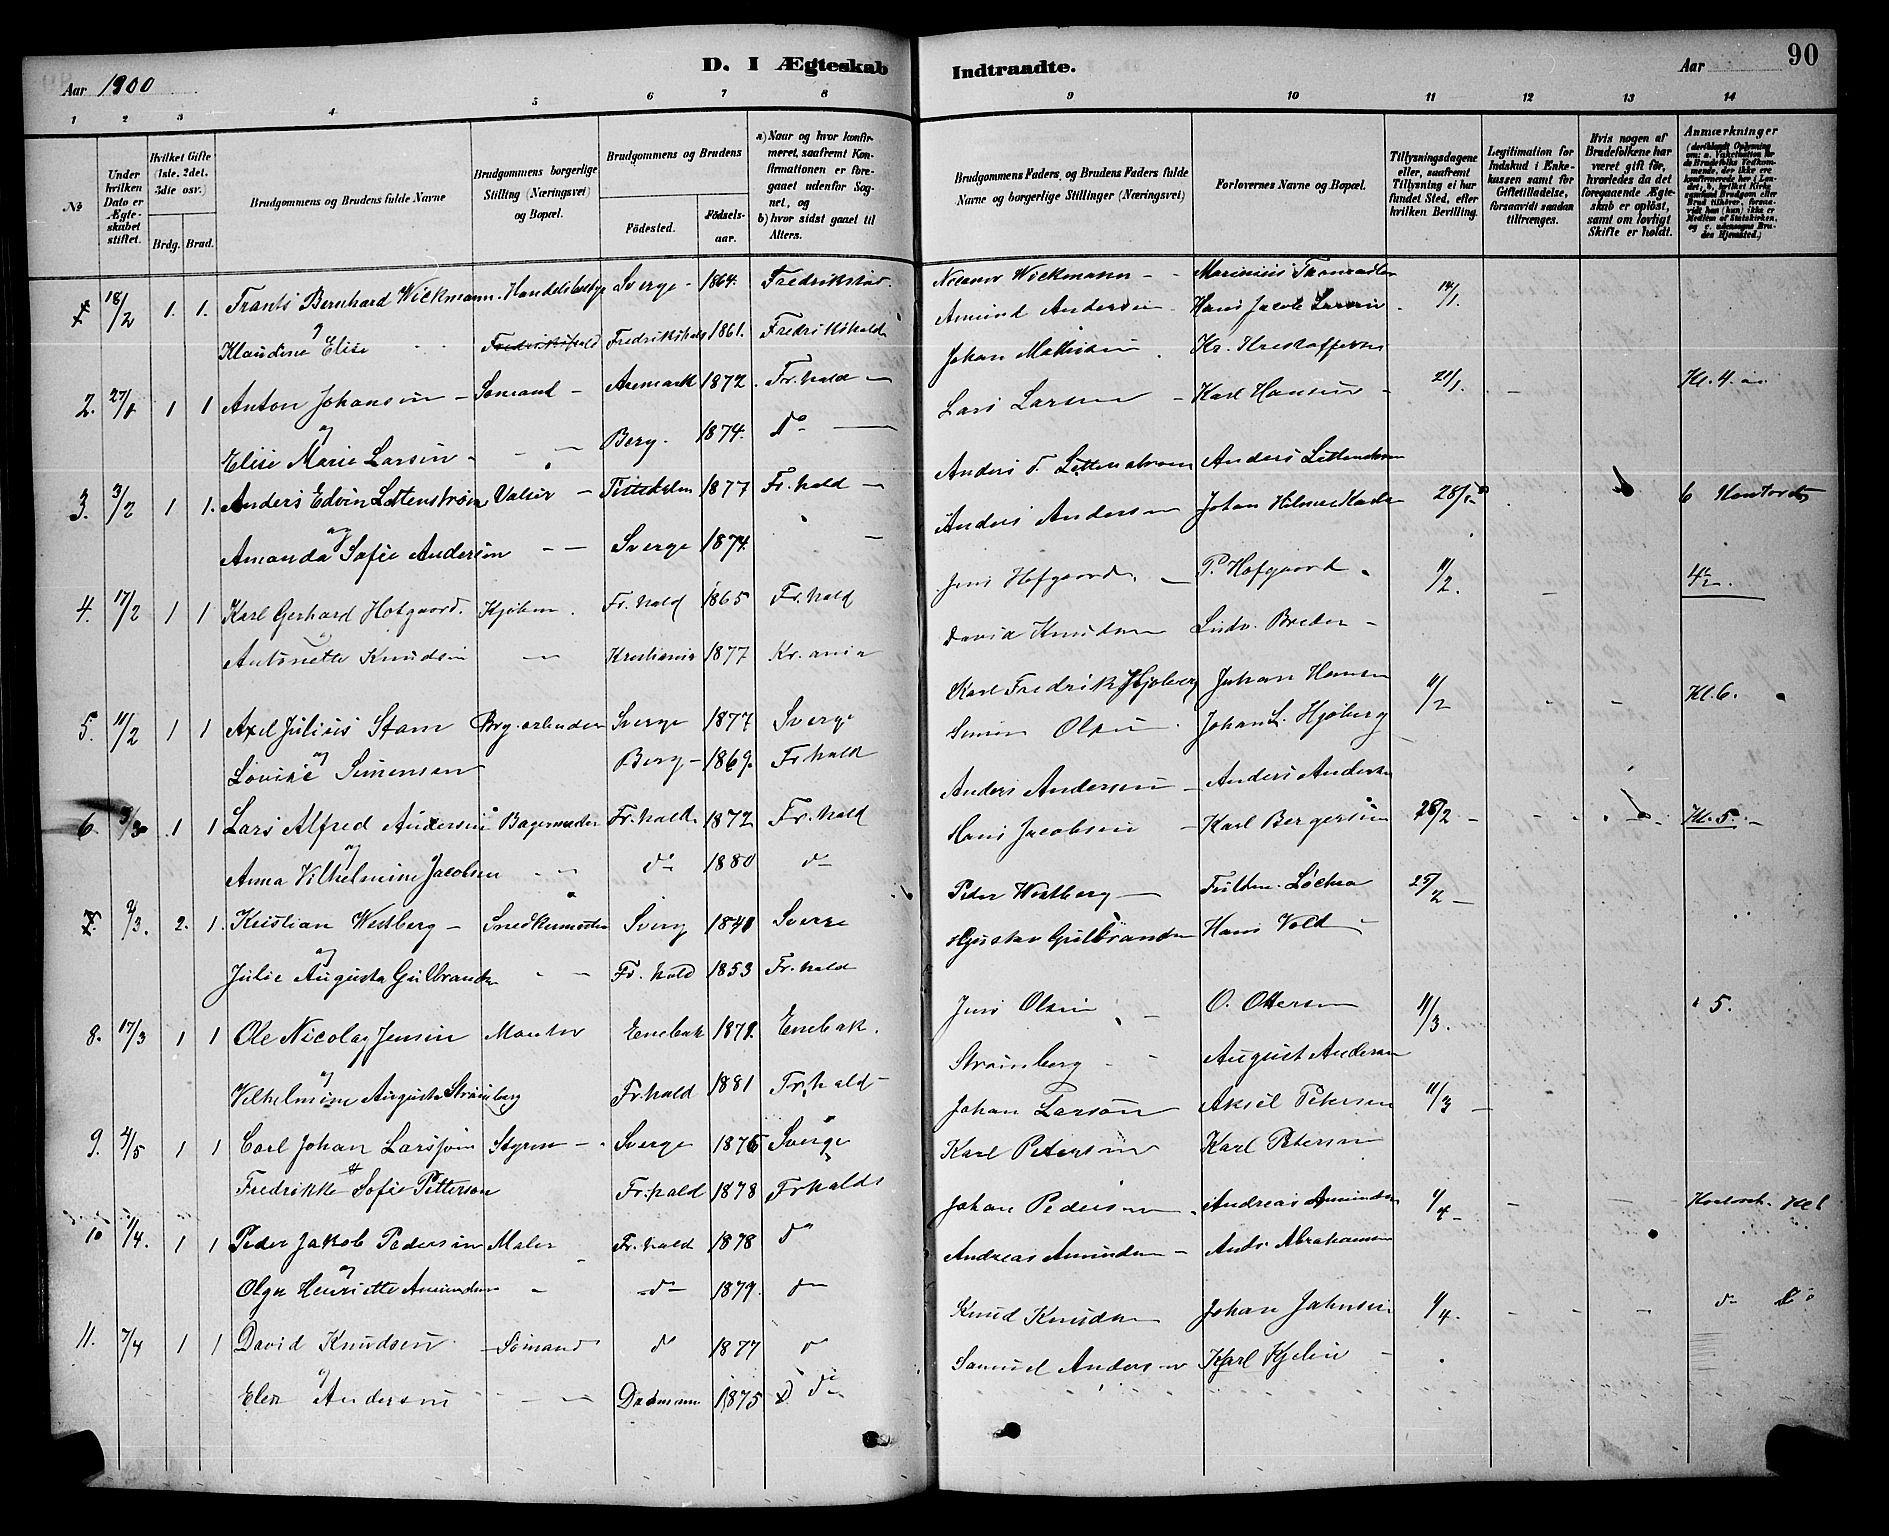 D. I Ægteskab Indtraadte.
Aar 1900
Aar
90
1 2 3 4 5 6 7 8 9 10 11 12 13 14
No
Under hvilken Dato er Ægteskabet stiftet.
Hvilket Gifte (1ste. 2det. 3die osv.)
Brdg. Brud.
Brudgommens og Brudens fulde Navne
Brudgommens borgerlige Stilling (Næringsvei) og Bopæl.
Brudgommens og Brudens
Födested.
Födselsaar.
a) Naar og hvor konfirmeret, saafremt Konfirmationen er foregaaet udenfor Sognet, og
b) hvor sidst gaaet til Alters.
Brudgommens Faders, og Brudens Faders fulde Navne og borgerlige Stillinger (Næringsvei)
Forlovernes Navne og Bopæl.
Tillysningsdagene eller, saafremt Tillysning ei har fundet Sted, efter hvilken Bevilling.
Legitimation for Indskud i Enkekassen samt for Giftetilladelse, forsaavidt saadan tiltrænges.
Hvis nogen af Brudefolkene har været gift för, hvorledes da det foregaaende Ægteskab er oplöst, samt om lovligt Skifte er holdt.
Anmærkninger
1 18/2 1. 1. Frants Bernhard Wickmann Sverge 1864. Fredrikstad Wickmann 14/1.
og
Klaudine Elise Fredrikshald 1861. Fredrikshald Amund Andersen Hans Jacob Larsen
2. 27/1 1 1 Anton Johansen Sömand Aremark 1872 Fr.hald Johan Mathisen 21/1. Kl. 4.
og
Elise Marie Larsen Berg. 1874. do Lars Larsen Karl Hansen
3. 3/2 1 1. Anders Edvin Tistedalen 1877 Fr.hald Anders 28/1 6
og
Amanda Sofie Andersen Sverge 1874. Anders Andersen
4. 17/2 1 1 Karl Gerhard Hofgaard. Kjöbm. Fr.hald 1865 Fr.hald Jens Hofgaard P. Hofgaard 11/2.
Antonette Knudsen Kristiania 1877 Kr.ania David Knudsen Ludv. Breder
5. 11/2 1 1 Axel Julius Stam Sverge 1877 Sverge Karl Fredrik Hjoberg Johan Hansen 11/2 Kl. 6.
og
Lovise Simensen Berg 1869. Fr.hald Simen Olsen Johan L. Hjöberg
6. 3/3 1 1 Lars Alfred Andersen Bagermester Fr.hald 1872 Fr.hald Anders Andersen Anders Andersen 26/2 Kl. 5.
og
Anna Vilhelmine Jacobsen do 1880 do Hans Jacobsen Karl Bergersen
7. 2/3. 2. 1. Kristian Westberg Snedkermester Sverg 1840 Sverge Peder Westberg 25/2
og
Julie Augusta Gulbrandsen Fr.hald 1853 Fr.hald Gustav Gulbrandsen Hans Vold
8. 17/3 1 1 Ole Nicolay Jensen Montör Enebak 1879. Enebak. Jens Olsen O. Ottersen 11/3. 5.
og
Vilhelmine Augusta Strömberg Fr.hald 1881 Fr.hald Strömberg August Andersen
9. 4/5 1 1 Carl Johan Larsson Styrm Sverge 1876 Sverge Johan Larson Aksel Petersen 11/3
Fredrikke Sofie Petterson Fr.hald 1878 Frhald Karl Petersen Karl Petersen
10 1/4. 1 1 Peder Jakob Pedersen Maler Fr.hald 1878 do Johan Pedersen Andreas Amundsen 1/4
og
Olga Henriette Amundsen do 1879. do Andreas Amundsen Andr. Abrahamsen
11. 7/4 1 1 David Knudsen Sömand do 1877 do Knud Knudsen Johan Johnsen 1/4. do do
og
Elen Andersen 1875 do Samuel Andersen Karl Hjelm